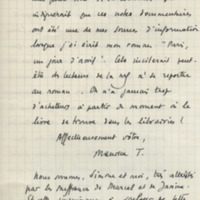 indiquerait que ces notes documentaires
ont été une de mes sources d'information
lorsque j'ai écrit mon roman "Paris,
un jour d'avril". Cela inciterait peut-
être des lecteurs de la nrf à se reporter
au roman. On n'a jamais trop
d'acheteurs à partir du moment où le
livre se trouve dans les librairies !
Affectueusement vôtre,
Maurice T.
Nous sommes, Simone et moi, très attristés
par les
de Marcel et de Janine.